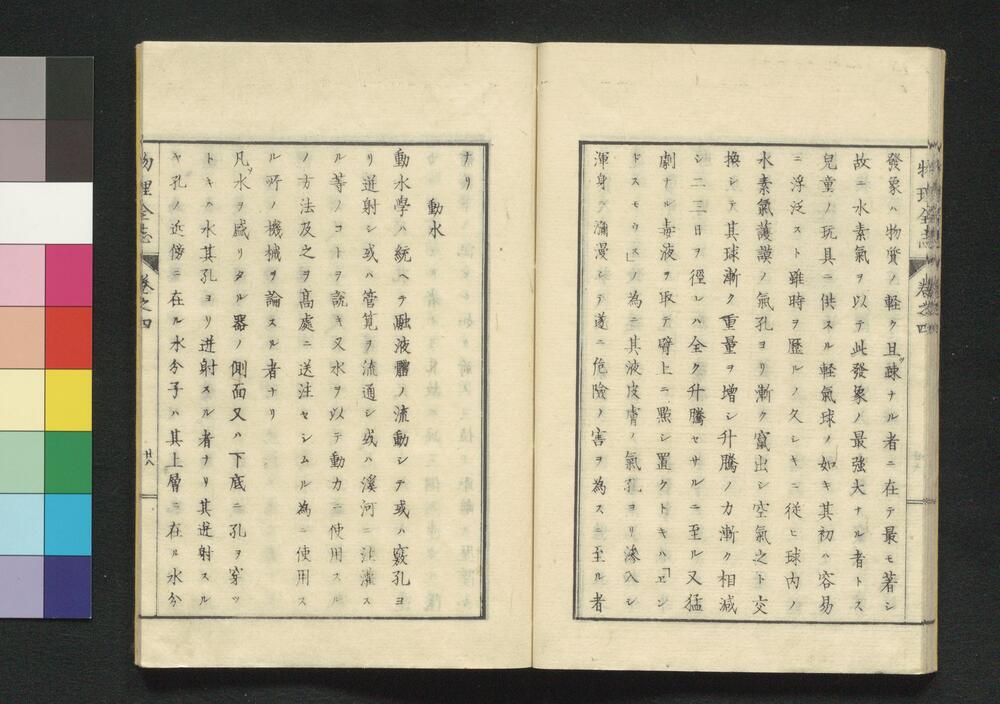 物理全志 卷之四
發象ハ物質ノ軽ク且ッ疎ナル者ニ在テ最モ著シ
故ニ水素氣ヲ以テ此發象ノ最強大ナル者トス
兒童ノ玩具ニ供スル軽氣球ノ如キ其初ハ容易
ニ浮泛スト雖時ヲ歴ルノ久シキニ従ヒ球内ノ
水素氣護謨ノ氣孔ヨリ漸ク竄出シ空氣之ト交
換シテ其球漸ク重量ヲ増シ升騰ノ力漸ク相減
シ二三日ヲ徑レハ全ク升騰セサルニ至ル又猛
劇ナル毒液ヲ取テ臂上ニ㸃シ置クトキハ「ヱン
ドスモウス」ノ為ニ其液皮膚ノ氣孔ヨリ滲入シ
渾身ニ瀰漫シテ遂ニ危險ノ害ヲ為スニ至ル者
ナリ
動水
動水学ハ統ヘテ融液體ノ流動シテ或ハ竅孔ヨ
リ迸射シ或ハ管筧ヲ流通シ或ハ溪河ニ注灌ス
ル等ノコトヲ説キ又水ヲ以テ動力ニ使用スル
ノ方法及之ヲ髙處ニ送注セシムル為ニ使用ス
ル所ノ機械ヲ論スル者ナリ
凡ッ水ヲ盛リタル器ノ側面又ハ下底ニ孔ヲ穿ッ
トキハ水其孔ヨリ迸射スル者ナリ其迸射スル
ヤ孔ノ近傍ニ在ル水分子ハ其上層ニ在ル水分
物理全志 卷之四 廿八